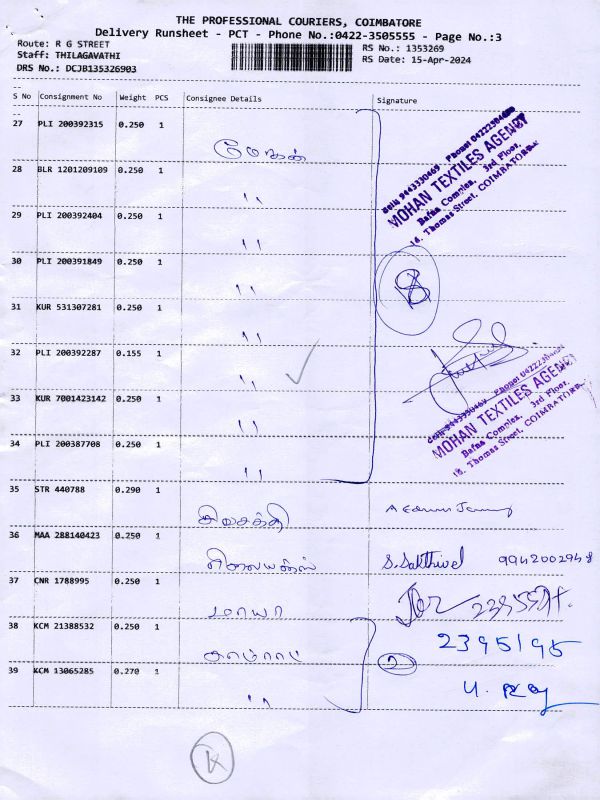 THE PROFESSIONAL COURIERS, COIMBATORE
Delivery Runsheet - PCT - Phone No.:0422-3505555 - Page No.:3
Route: R G STREET
RS No.: 1353269
Staff: THILAGAVATHI
RS Date: 15-Apr-2024
DRS No.: DCJB135326903
S No Consignment No Weight PCS Consignee Details Signature
27 PLI 200392315 0.250 1 மோகன்
28 BLR 1201209109 0.250 1 ''
29 PLI 200392404 0.250 1 ''
30 PLI 200391849 0.250 1 ''
31 KUR 531307281 0.250 1 ''
32 PLI 200392287 0.155 1 ''
33 KUR 7001423142 0.250 1 ''
34 PLI 200387708 0.250 1 ''
Cell: 9443330469 Phone: 04222304
MOHAN TEXTILES AGENCY
Bafna Complex, 3rd Floor,
16, Thomas Street, COIMBATORE
8
MOHAN TEXTILES AGENCY
Bafna Complex, 3rd Floor,
16, Thomas Street, COIMBATORE
35 STR 440788 0.290 1 சிவசக்தி
36 MAA 288140423 0.250 1 ரிலையன்ஸ் S. Sakthivel 9942002948
37 CNR 1788995 0.250 1 மாயா
38 KCM 21388532 0.250 1 2395195
39 KCM 13065285 0.270 1 ''
2